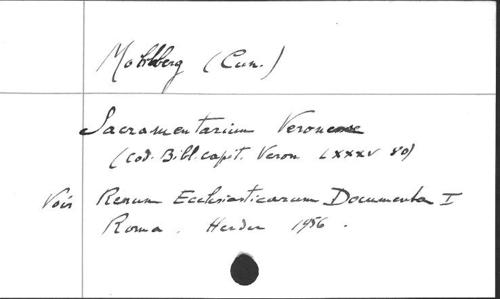 Mohlberg (Cun.)
Sacramentarium Veronense
(cod. Bibl. capit. Veron LXXXV 80)
Voir Rerum Ecclesiasticarum Documenta I
Roma. Herder 1956.